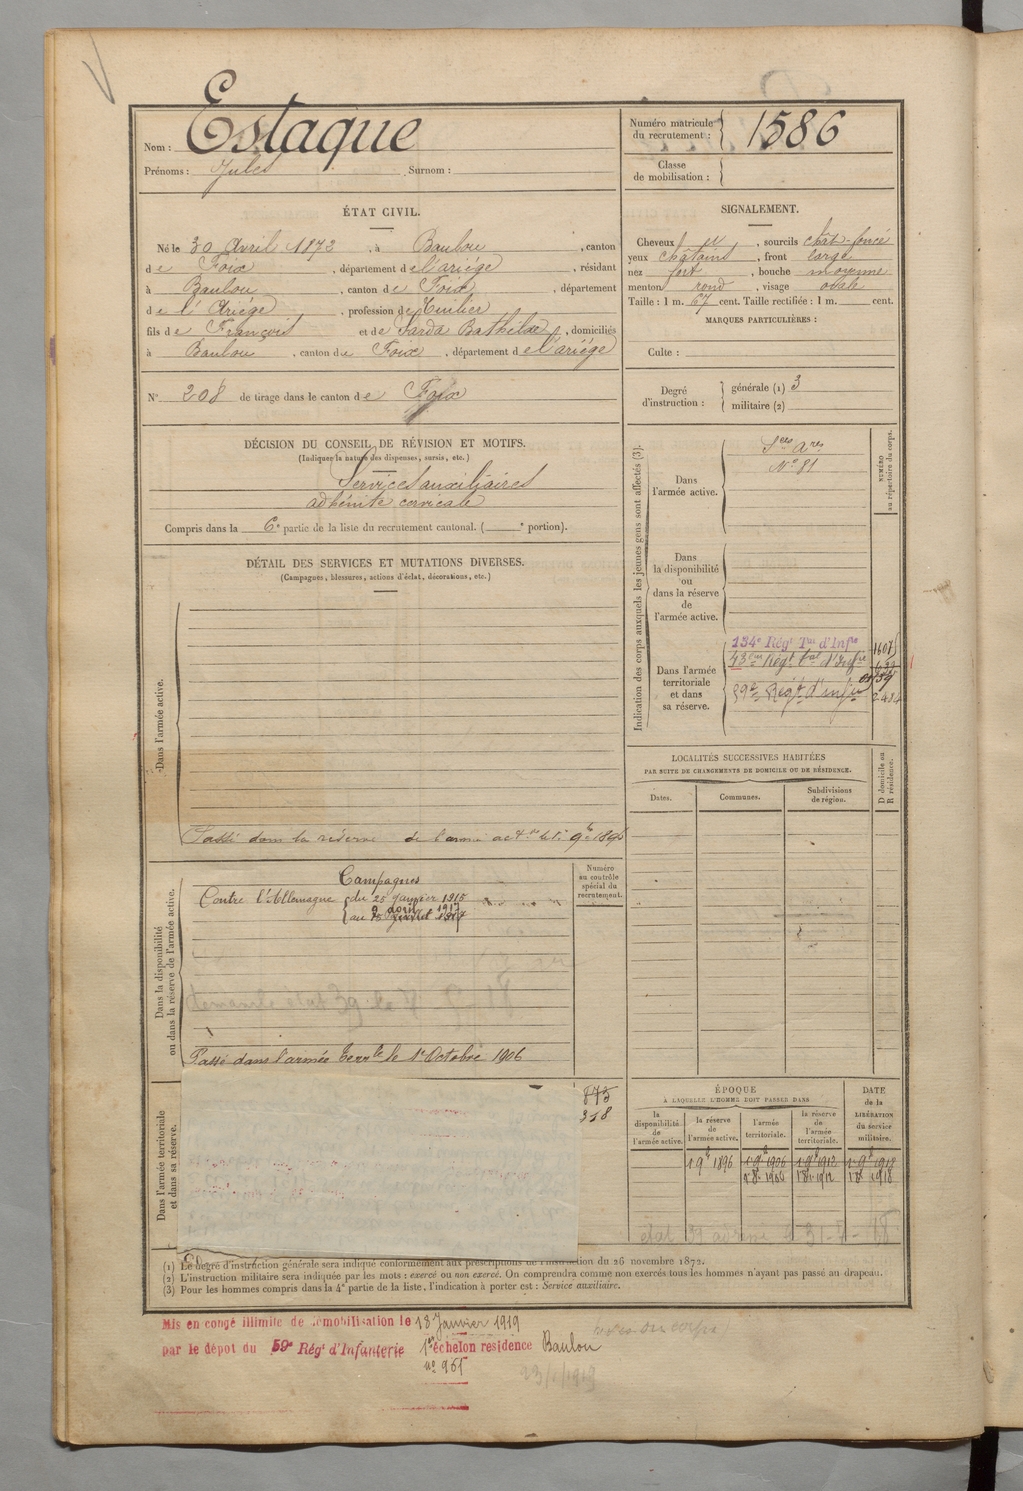 Nom : Estaque
Prénoms : Jules Surnom :
Numéro matricule du recrutement : 1586
Classe de mobilisation :
ÉTAT CIVIL.
Né le 30 Avril 1872, à Baulou, canton
de Foix, département de l'ariége, résidant
à Baulou, canton de Foix, département
de l'Ariége, profession de Tuilier
fils de François et de Sarda Bathilde, domiciliés
à Baulou, canton de Foix, département de l'ariége
N° 208 de tirage dans le canton de Foix
SIGNALEMENT.
Cheveux et, sourcils chât-foncé
yeux châtains, front large
nez fort, bouche moyenne
menton rond, visage ovale
Taille : 1 m. 67 cent. Taille rectifiée : 1 m. cent.
MARQUES PARTICULIÈRES :
Culte :
Degré d'instruction : générale (1) 3
militaire (2)
DÉCISION DU CONSEIL DE RÉVISION ET MOTIFS.
(Indiquer la nature des dispenses, sursis, etc.)
Services auxiliaires
adénite cervicale
Compris dans la 6e partie de la liste du recrutement cantonal. ( e portion).
DÉTAIL DES SERVICES ET MUTATIONS DIVERSES.
(Campagnes, blessures, actions d'éclat, décorations, etc.)
Dans l'armée active.
Passé dans la réserve de l'armée actve le 1er 9bre 1896
Dans la disponibilité
ou dans la réserve de l'armée active.
Numéro
au contrôle
spécial du
recrutement.
Campagnes
Contre l'Allemagne du 25 Janvier 1915
au 9 avril 1917
Passé dans l'armée Terrle le 1er Octobre 1906
Dans l'armée territoriale
et dans sa réserve.
875
318
Indication des corps auxquels les jeunes gens sont affectés (3).
NUMÉRO
au répertoire du corps.
Dans
l'armée active.
Sces Ares
N° 81
Dans
la disponibilité
ou
dans la réserve
de
l'armée active.
Dans l'armée
territoriale
et dans
sa réserve.
134e Régt Tal d'Infie 1607
43ème Régt tal d'Infie
59e Régt d'infie
LOCALITÉS SUCCESSIVES HABITÉES
PAR SUITE DE CHANGEMENTS DE DOMICILE OU DE RÉSIDENCE.
Dates. Communes. Subdivisions de région. D domicile ou R résidence.
ÉPOQUE
À LAQUELLE L'HOMME DOIT PASSER DANS
la disponibilité de l'armée active.
la réserve de l'armée active.
l'armée territoriale.
la réserve de l'armée territoriale.
DATE de la LIBÉRATION du service militaire.
1 9bre 1896 1 9bre 1906 1 9bre 1912 1 9bre 1918
1 8bre 1906 1 8bre 1912 1 8bre 1918
(1) Le degré d'instruction générale sera indiqué conformément aux prescriptions de l'instruction du 26 novembre 1872.
(2) L'instruction militaire sera indiquée par les mots : exercé ou non exercé. On comprendra comme non exercés tous les hommes n'ayant pas passé au drapeau.
(3) Pour les hommes compris dans la 4e partie de la liste, l'indication à porter est : Service auxiliaire.
Mis en congé illimité de démobilisation le 13 Janvier 1919
par le dépot du 59e Régt d'Infanterie 1er échelon residence Baulou
n° 965
23/1/1919